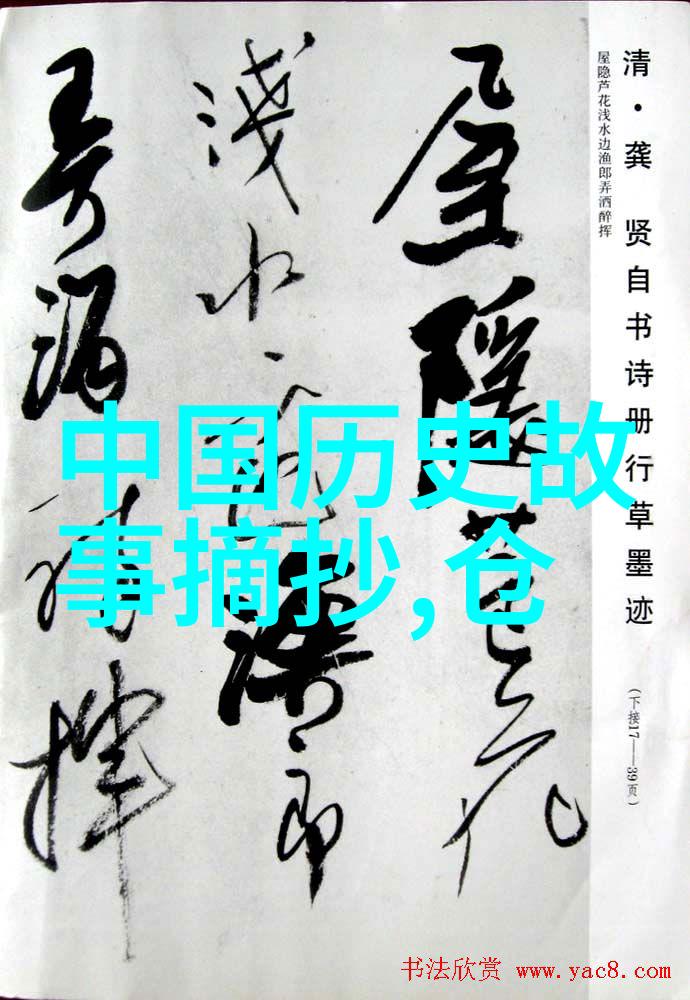 清·龚 贤自书诗册行草墨迹
(下接17——39页)
屋隐芦花浅水边渔郎弄酒醉挥
屋隐芦花
浅水边渔郎
弄酒醉挥
中国历史故
事摘抄,仓
书法欣赏 www.yac8.com